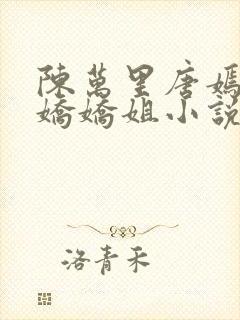 陳萬里唐嫣
嬌嬌姐小說
洛青禾